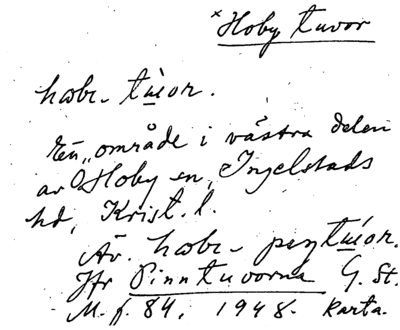 × Hoby tuvor
hœbɩ- tùor.
En „område i västra delen
av Ö Hoby sn, Ingelstads
hd, Krist. l.
Äv. hœbɩ- pęŋtúor.
Jfr Pinntuvorna G. St.
M. f. 84, 1948. Karta.